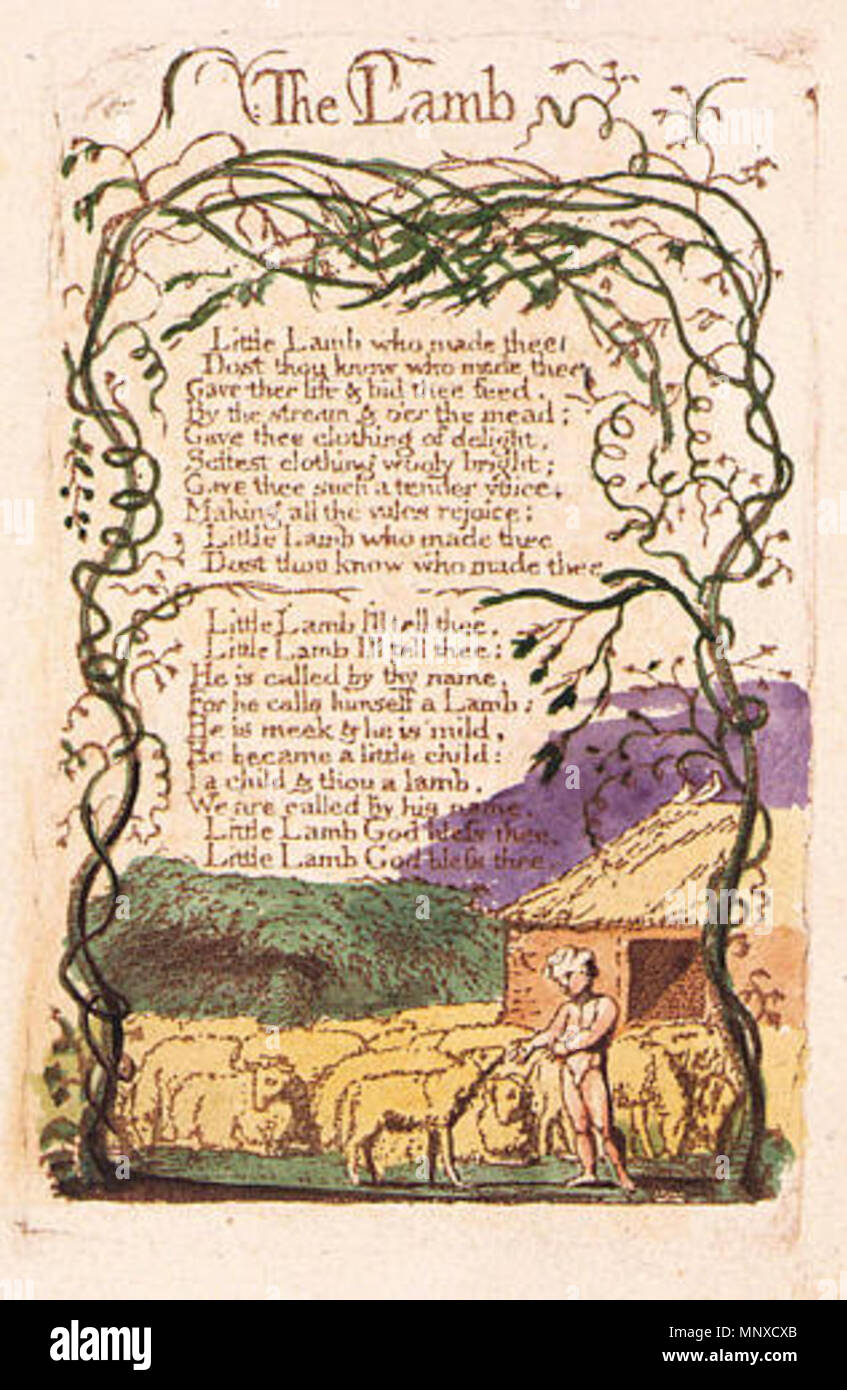 The Lamb
Little Lamb who made thee
Dost thou know who made thee
Gave thee life & bid thee feed.
By the stream & o'er the mead;
Gave thee clothing of delight,
Softest clothing wooly bright;
Gave thee such a tender voice,
Making all the vales rejoice:
Little Lamb who made thee
Dost thou know who made thee
Little Lamb I'll tell thee,
Little Lamb I'll tell thee:
He is called by thy name,
For he calls himself a Lamb:
He is meek & he is mild,
He became a little child:
I a child & thou a lamb,
We are called by his name.
Little Lamb God bless thee.
Little Lamb God bless thee.
alamy
Image ID: MNXCXB
www.alamy.com